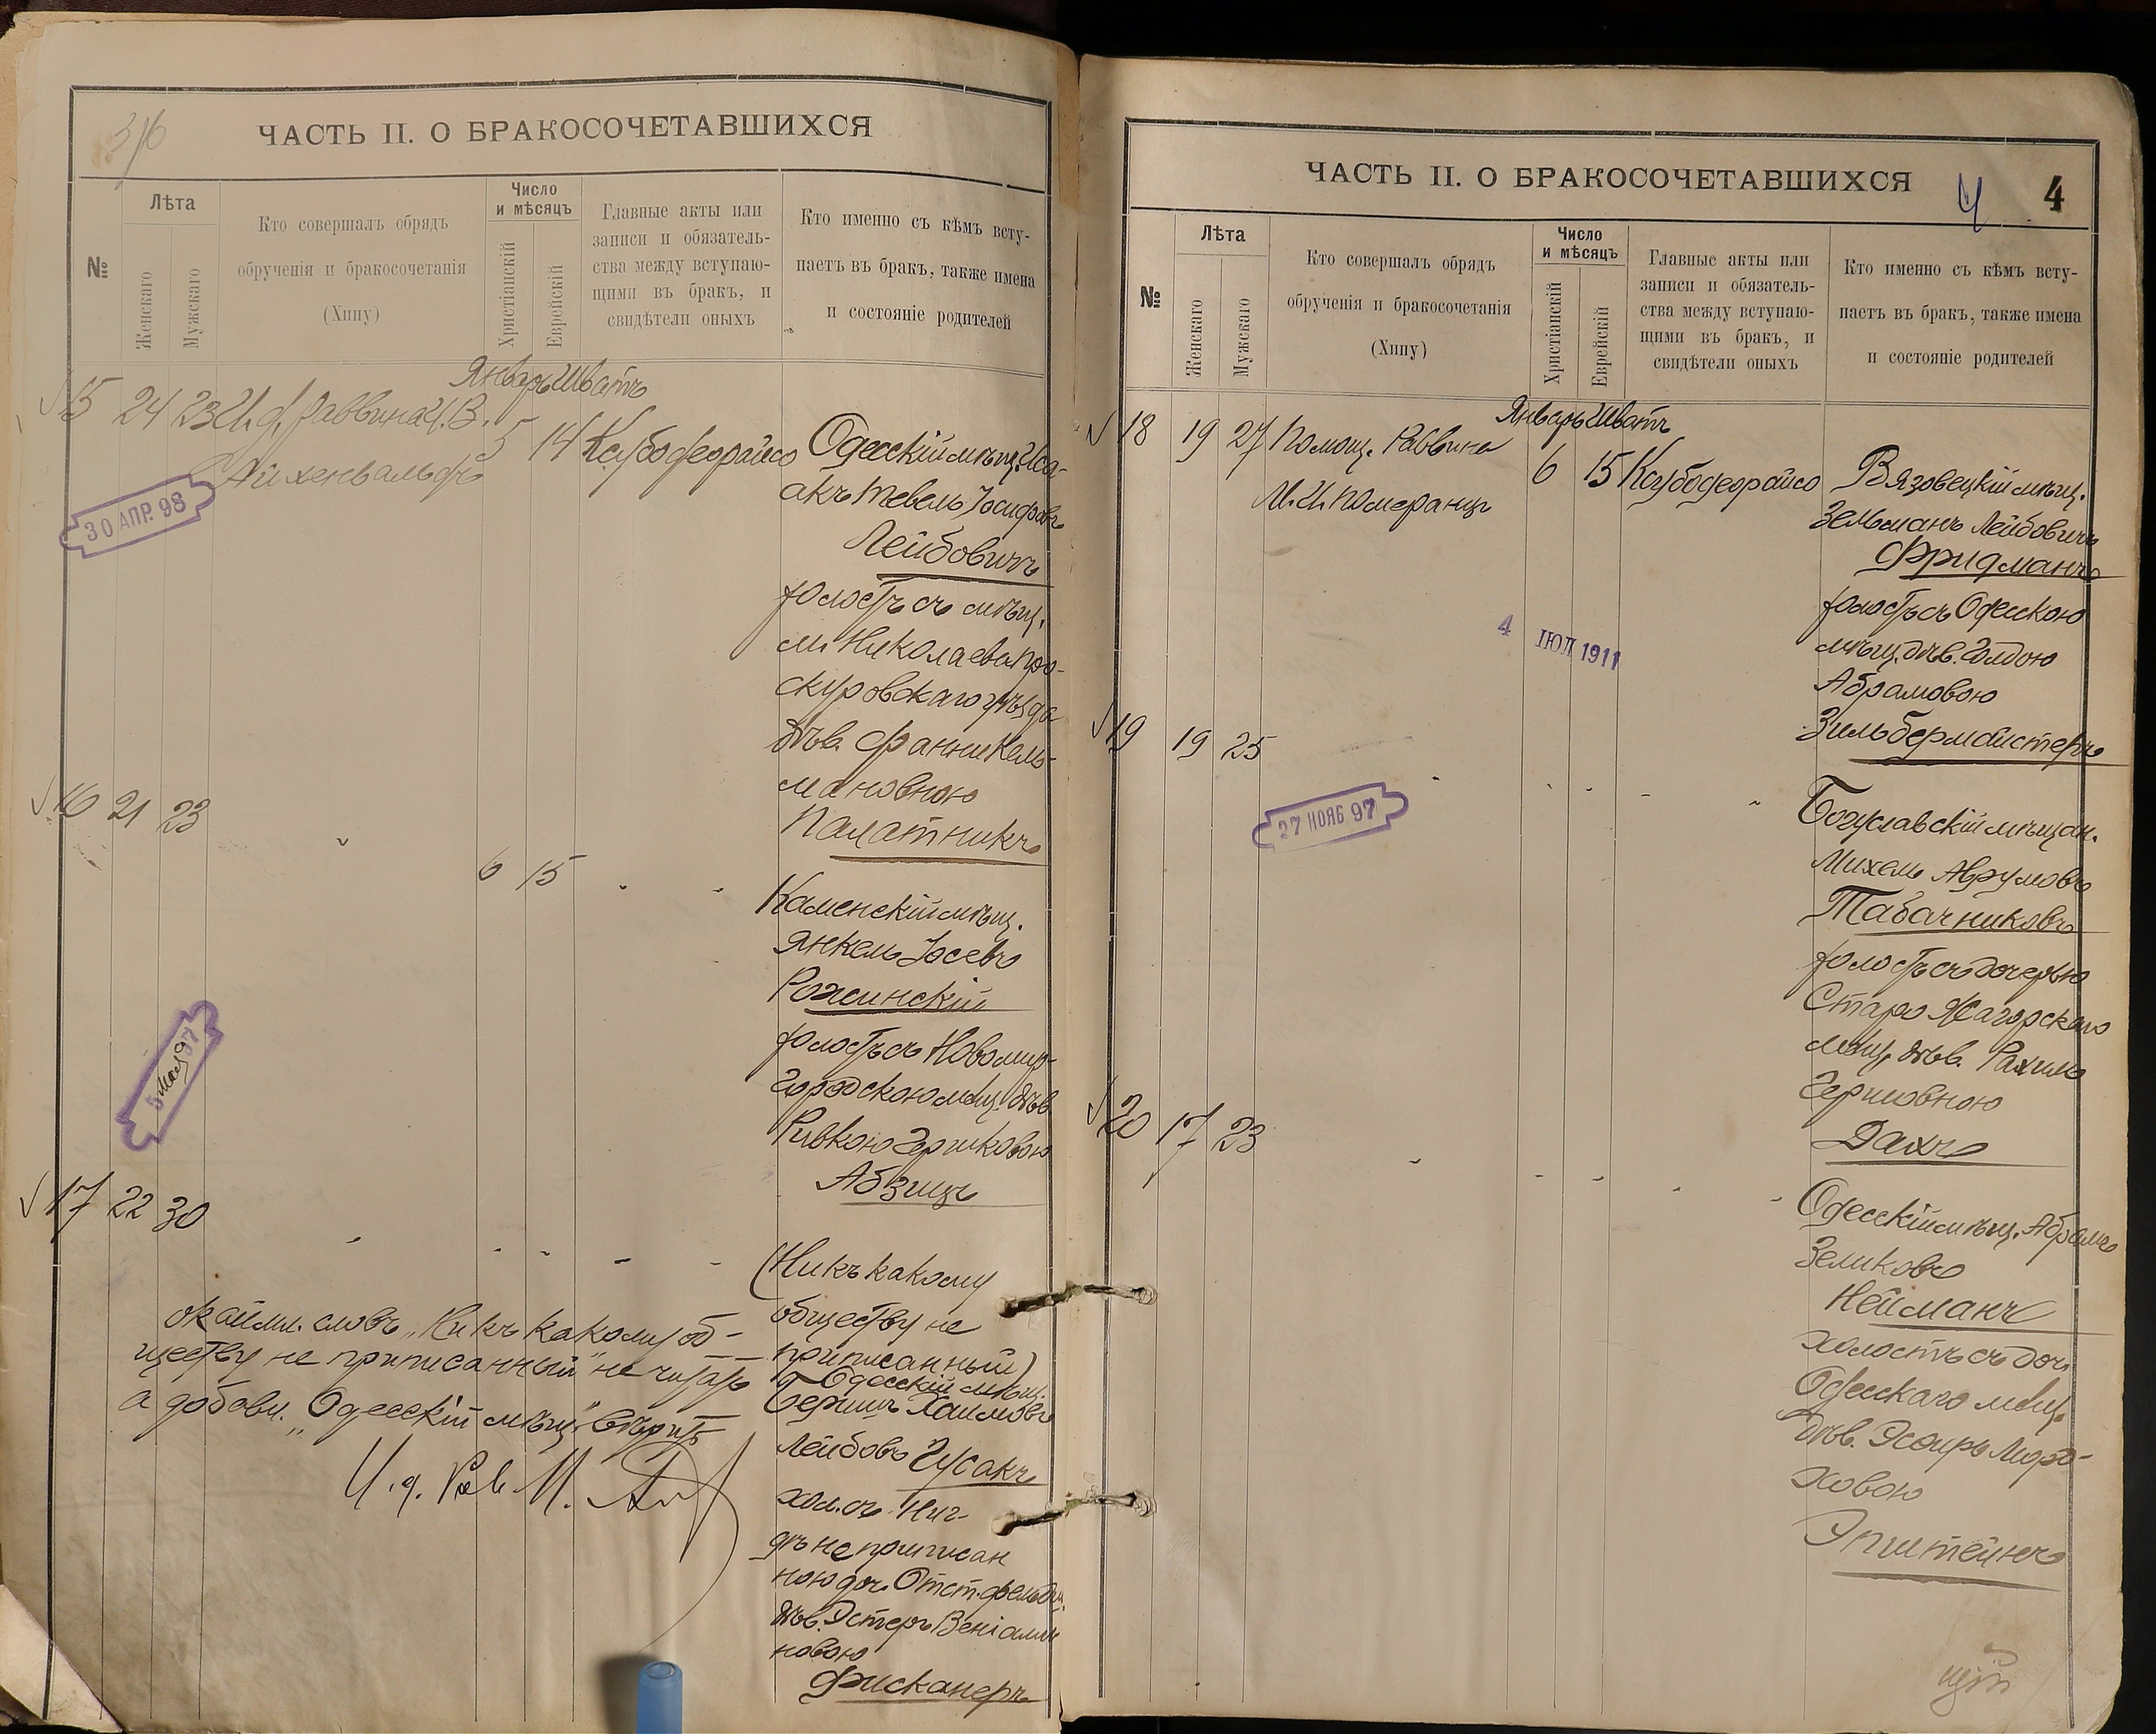 ЧАСТЬ II. О БРАКОСОЧЕТАВШИХСЯ
№
Лѣта
Женскаго
Мужскаго
Кто совершалъ обрядъ
обрученія и бракосочетанія
(Хипу)
Число
и мѣсяцъ
Христіанскій
Еврейскій
Главные акты или
записи и обязатель-
ства между вступаю-
щими въ бракъ, и
свидѣтели оныхъ
Кто именно съ кѣмъ всту-
паетъ въ бракъ, также имена
и состояніе родителей
Январь Шватъ
15 24 23 И. д. раввина Ц. В.
Айхенвальдъ
5 14 Ксубодеорайсо
30 АПР. 98
Одесскій мѣщ. Иса-
акъ Тевель Іосифовъ
Лейбовичъ
холостъ съ мѣщ.
м. Николаева Про-
скуровскаго уѣзда
дѣв. Фанни Кель-
мановною
Палатникъ
16 21 23
6 15
Каменскій мѣщ.
Янкель Іосевъ
Рожинскій
холостъ съ Новомир-
городскою мѣщ. дѣв.
Ривкою Гершковою
Абзицъ
17 22 30
(Никъ какому
обществу не
приписанный)
Одесскій мѣщ.
Бериш Хаимовъ
Лейбовъ Гусакъ
хол. съ Ниг-
дѣ не приписан
ною доч. Отст. фельд.
дѣв. Эстеръ Веніами
новою
Фисканеръ
окайми. словъ „Никъ какому об-
ществу не приписанный" не читать
а добавл. „Одесскій мѣщ." вѣрить
И. д. Рав.
ЧАСТЬ II. О БРАКОСОЧЕТАВШИХСЯ
4 4
№
Лѣта
Женскаго
Мужскаго
Кто совершалъ обрядъ
обрученія и бракосочетанія
(Хипу)
Число
и мѣсяцъ
Христіанскій
Еврейскій
Главные акты или
записи и обязатель-
ства между вступаю-
щими въ бракъ, и
свидѣтели оныхъ
Кто именно съ кѣмъ всту-
паетъ въ бракъ, также имена
и состояніе родителей
Январь Шватъ
18 19 27 Помощ. Раввина
М. И. Померанцъ
6 15 Ксубодеорайсо
Вязовецкій мѣщ.
Зельманъ Лейбовичъ
Фридманъ
холостъ съ Одесскою
мѣщ. дѣв. Голдою
Абрамовою
Зильбермистеръ
4 ІЮЛ 1911
19 19 25
27 НОЯБ 97
Богуславскій мѣщан.
Михель Аврумовъ
Табачниковъ
холостъ съ дочерью
Старо Жагорскаго
мѣщ. дѣв. Рахиль
Гершовною
Дахъ
20 17 23
Одесскій мѣщ. Абрамъ
Зеликовъ
Нейманъ
холостъ съ доч.
Одесскаго мѣщ.
дѣв. Эсфирь Морд-
ховою
Эпштейнъ